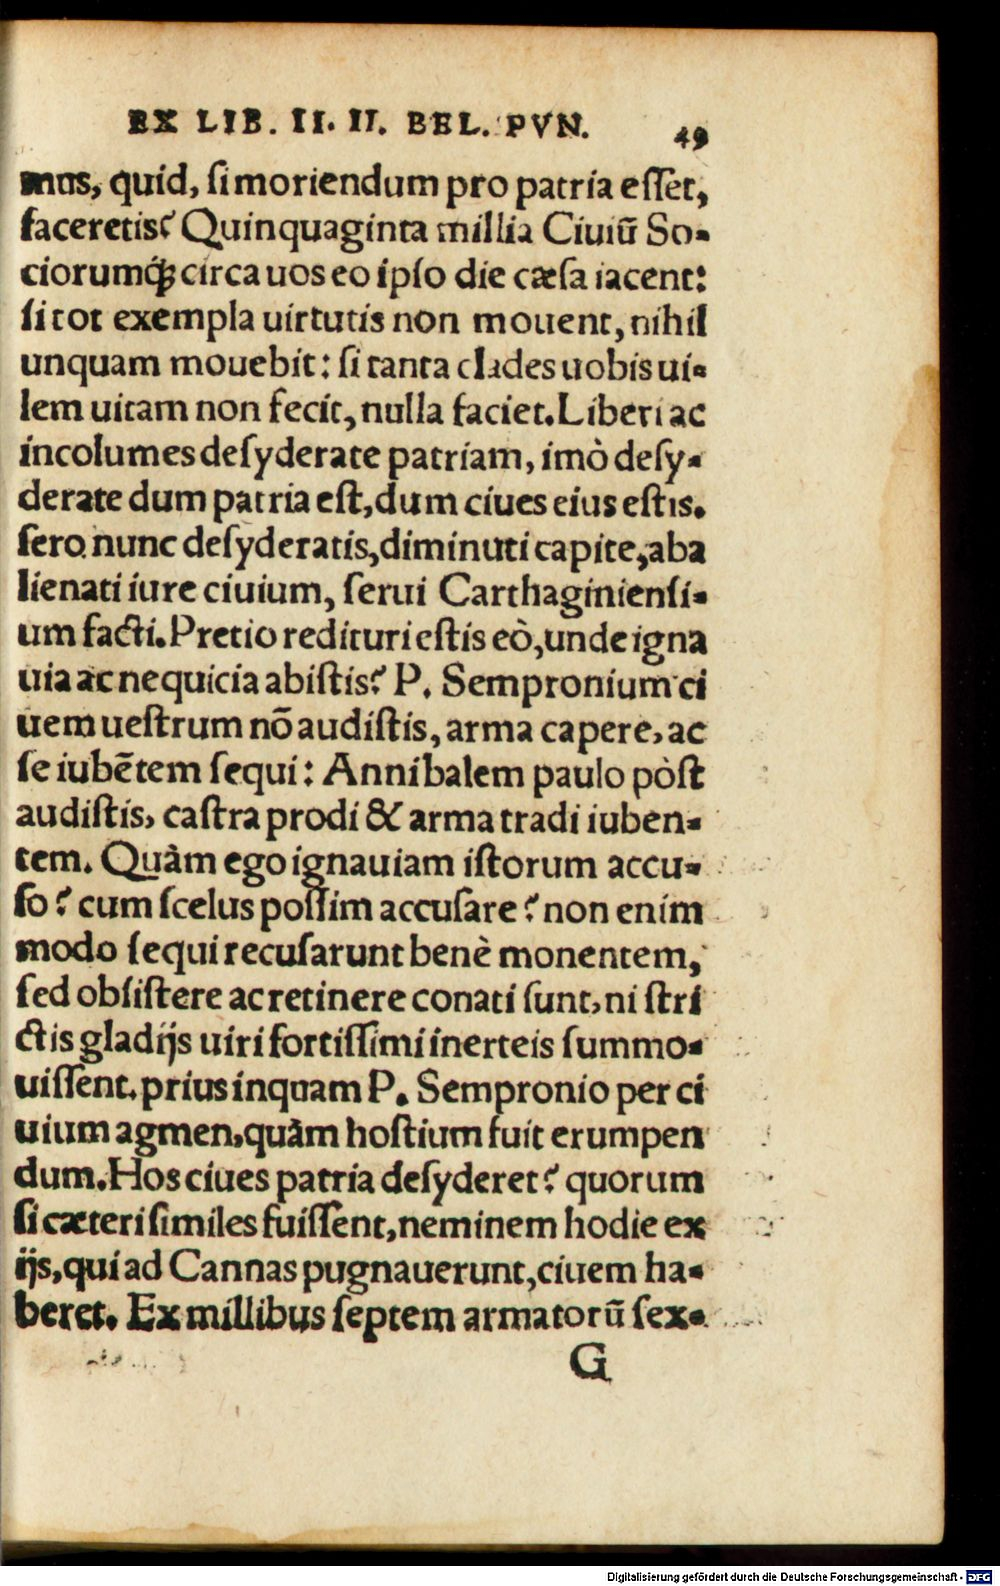 EX LIB. II. II. BEL. PVN. 49
mus, quid, ſi moriendum pro patria eſſet,
faceretis? Quinquaginta millia Ciuiũ So-
ciorumq́; circa uos eo ipſo die cæſa iacent:
ſi tot exempla uirtutis non mouent, nihil
unquam mouebit: ſi tanta clades uobis ui-
lem uitam non fecit, nulla faciet. Liberi ac
incolumes deſyderate patriam, imò deſy-
derate dum patria eſt, dum ciues eius eſtis.
ſero nunc deſyderatis, diminuti capite, aba
lienati iure ciuium, ſerui Carthaginienſi-
um facti. Pretio redituri eſtis eò, unde igna
uia ac nequicia abiſtis? P. Sempronium ci
uem ueſtrum nō audiſtis, arma capere, ac
ſe iubētem ſequi: Annibalem paulo pòſt
audiſtis, caſtra prodi & arma tradi iuben-
tem. Quàm ego ignauiam iſtorum accu-
ſo? cum ſcelus poſſim accuſare? non enim
modo ſequi recuſarunt benè monentem,
ſed obſiſtere ac retinere conati ſunt, ni ſtri
ctis gladijs uiri fortiſſimi inerteis ſummo-
uiſſent. prius inquam P. Sempronio per ci
uium agmen, quàm hoſtium fuit erumpen
dum. Hos ciues patria deſyderet? quorum
ſi cæteri ſimiles fuiſſent, neminem hodie ex
ijs, qui ad Cannas pugnauerunt, ciuem ha-
beret. Ex millibus ſeptem armatorũ ſex-
G
Digitalisierung gefördert durch die Deutsche Forschungsgemeinschaft - DFG